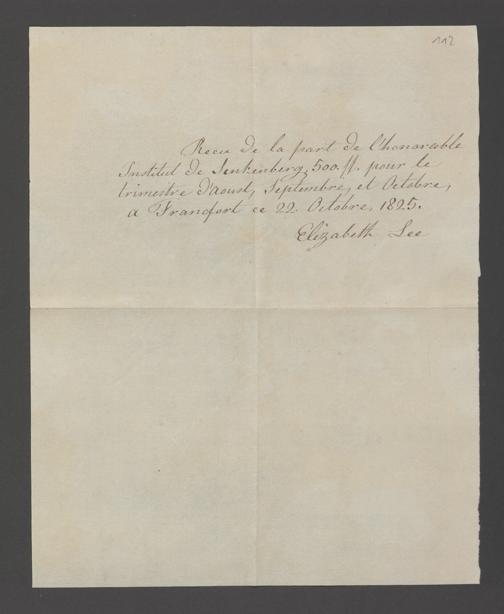 112
Recu de la part de l'honorable
Institut de Senkenberg, 500. ff. pour le
trimestre d'aoust, Septembre, et Octobre,
a Francfort ce 22. Octobre, 1825.
Elizabeth Lee